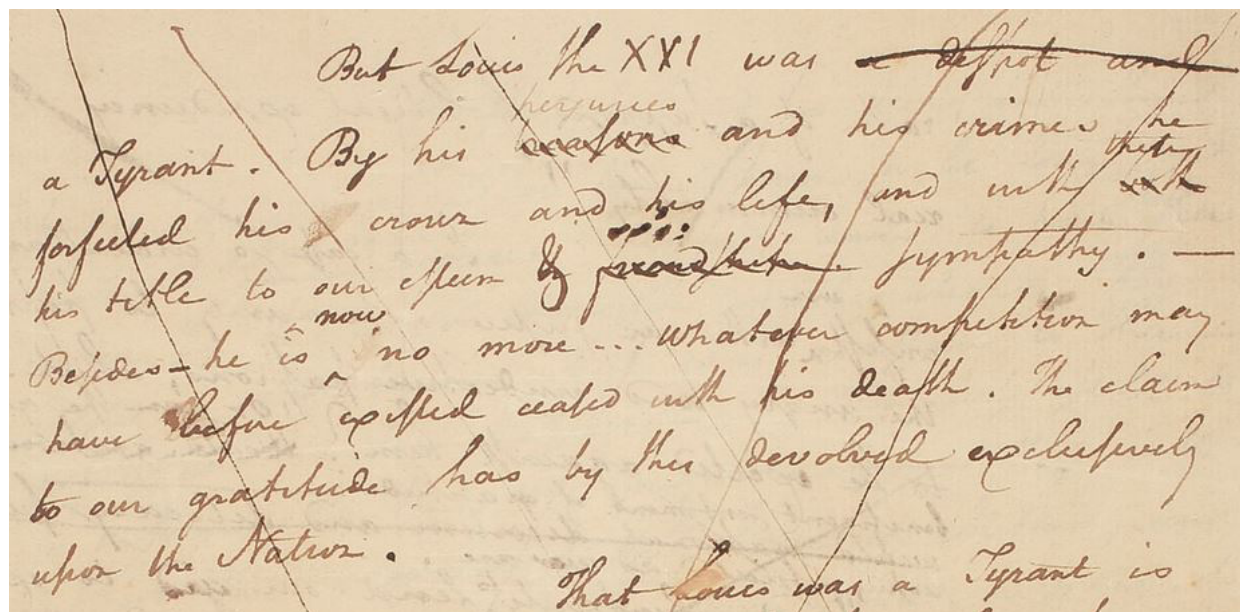 But Louis the XXI was a despot and
perjuries
a Tyrant. By his treasons and his crimes he
their
forfeited his crown and his life, and with
his title to our esteem & sympathy. —
now
Besides – he is ^ no more... whatever competition may
have before existed ceased with his death. The claim
to our gratitude has by this devolved exclusively
upon the Nation.
x
That Louis was a Tyrant is